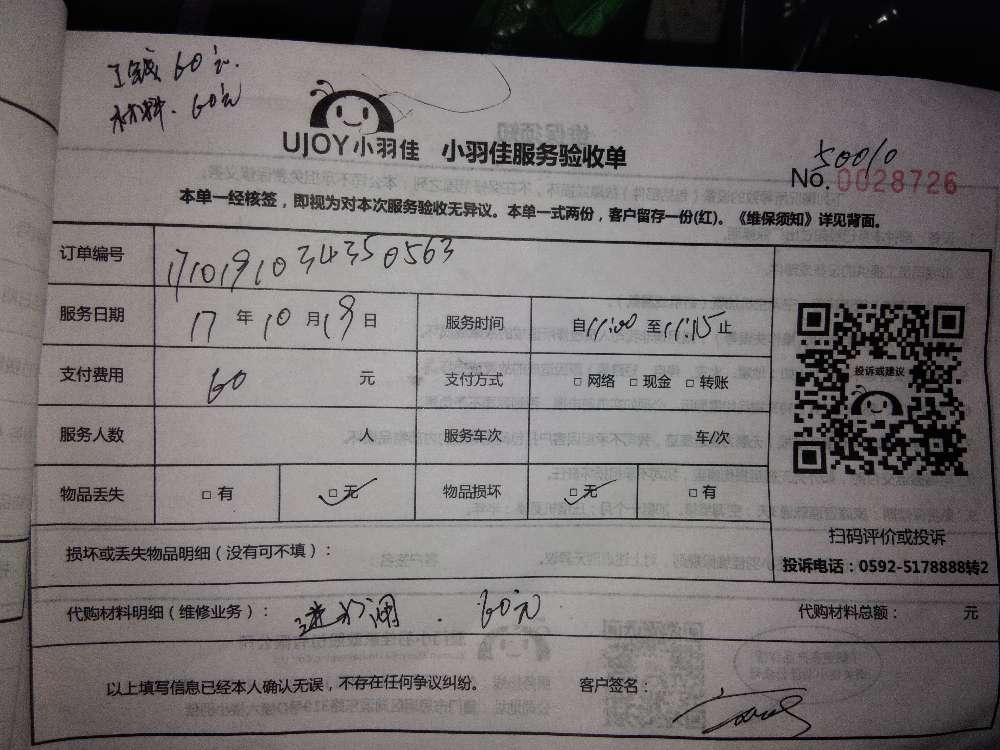 工钱60元.
材料.60元
UJOY小羽佳 小羽佳服务验收单
50010
No. 0028726
本单一经核签，即视为对本次服务验收无异议。本单一式两份，客户留存一份(红)。《维保须知》详见背面。
订单编号 1710191034350563
服务日期 17 年 10 月 19 日 服务时间 自 11:00 至 11:15 止
支付费用 60 元 支付方式 □ 网络 □ 现金 □ 转账
投诉或建议
服务人数 人 服务车次 车/次
物品丢失 □ 有 □ 无 物品损坏 □ 无 □ 有
扫码评价或投诉
损坏或丢失物品明细（没有可不填）：
投诉电话：0592-5178888转2
代购材料明细（维修业务）： 进水阀. 60元 代购材料总额： 元
以上填写信息已经本人确认无误，不存在任何争议纠纷。 客户签名：